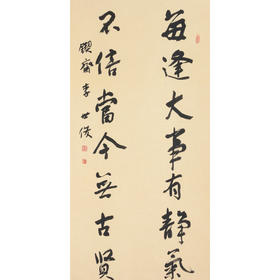 每逢大事有静氣
不信當今無古賢
鍥齋李世俊